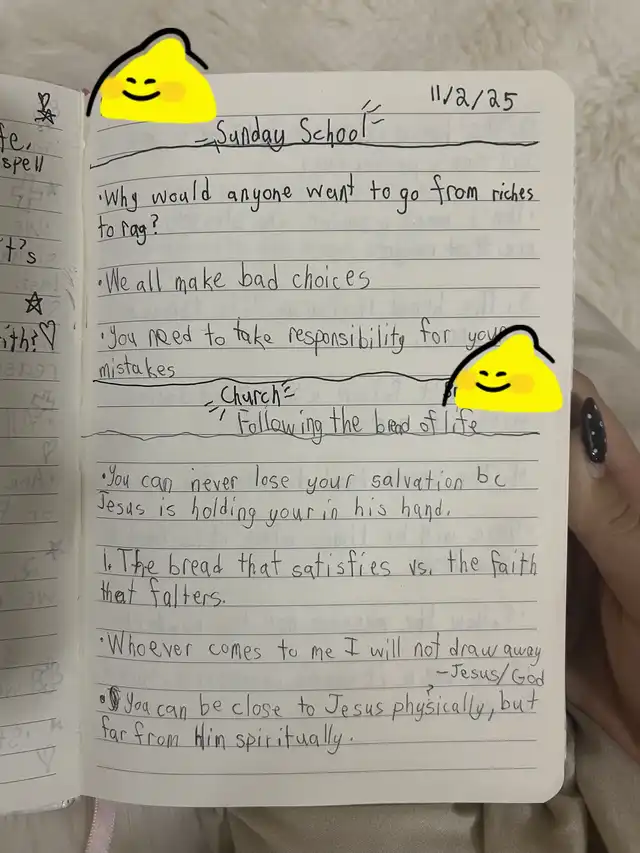 fe.
spell
t's
ith?
11/2/25
Sunday School
·Why would anyone want to go from riches
to rag?
·We all make bad choices
·You need to take responsibility for your
mistakes
Church
Following the bread of life
·You can never lose your salvation bc
Jesus is holding your in his hand.
1. The bread that satisfies vs. the faith
that falters.
·Whoever comes to me I will not draw away
-Jesus/God
·You can be close to Jesus physically, but
far from Him spiritually.